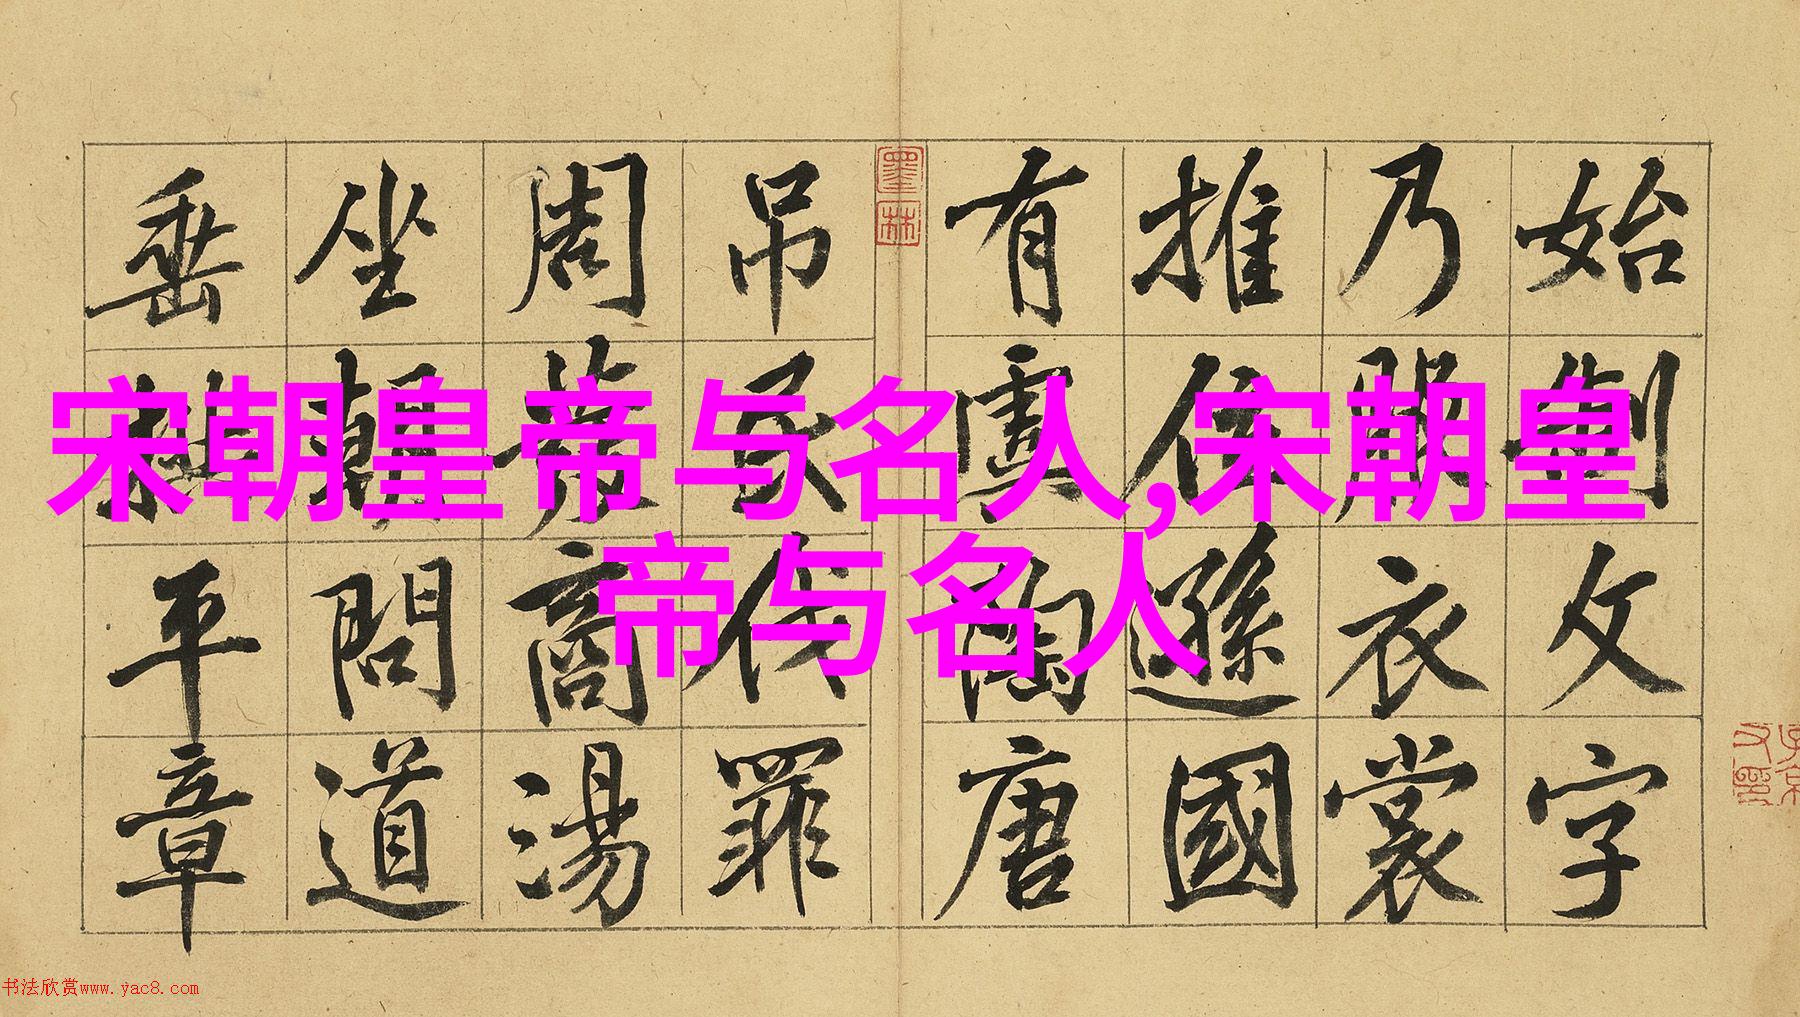 始制文字
乃服衣裳
推位遜國
有虞陶唐
墨林
吊民伐罪
周發商湯
坐朝問道
垂拱平章
宋朝皇帝与名人,宋朝皇
帝与名人
书法欣赏www.yac8.com